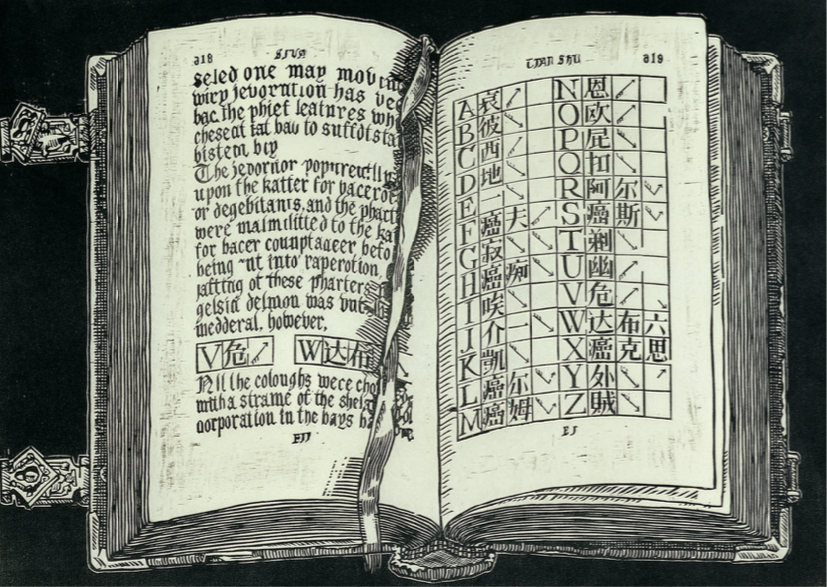 SIVA
seled one may mov
wirp jevoration has ve
bac. the phief leatures wh
cheseat fat bau to suffotsta
bisteal biy
The jevornor
upon the katter for pacerot
or degebitants, and the phart
were malmilitted to the ka
for bacer counptaaeer befo
being nt into raperotion
jafting of these pharters
gelsia delmon was vut
wedderal, however,
V危 W达布
Nll the coloughs were cho
mitha strame of the shel
oorporation in the bays ba
TIAN SHU
A 哀 N 恩
B 彼 O 欧
C 西 P 屁
D 地 Q 扣
E 一 R 阿 尔
F 癌 夫 S 癌 斯
G 寂 T 剃
H 癌 痴 U 幽
I 唉 V 危
I 介 一 W 达 布 六
K 凯 X 癌 克 思
L 癌 尔 Y 外
M 癌 姆 Z 贼